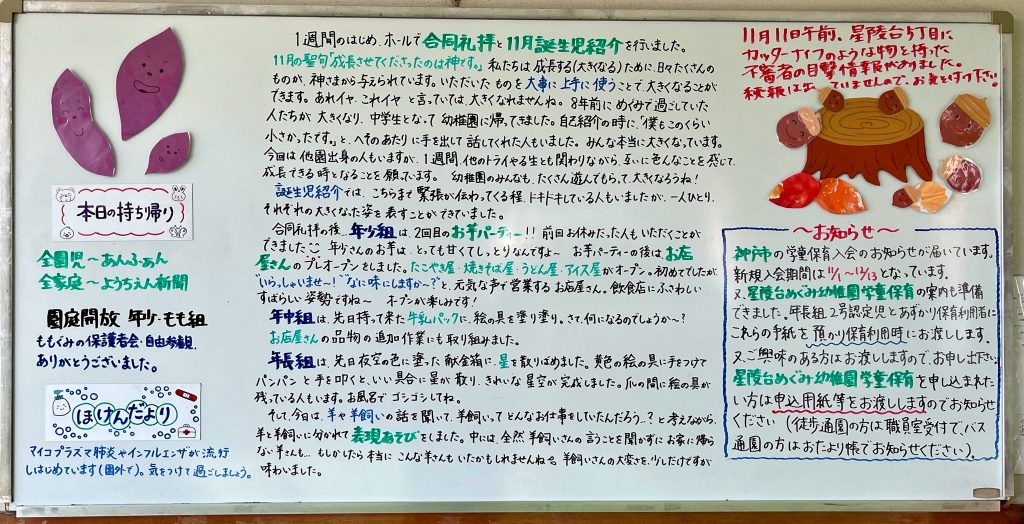 本日の持ち帰り
全園児〜あんふぁん
全家庭〜ようちえん新聞
園庭開放 年少・もも組
ももぐみの保護者会・自由参観、
ありがとうございました。
ほけんだより
マイコプラズマ肺炎やインフルエンザが流行
しはじめています(園外で)。気をつけて過ごしましょう。
1週間のはじめ、ホールで合同礼拝と11月誕生児紹介を行いました。
11月の聖句「成長させてくださったのは神です。」私たちは成長する(大きくなる)ために、日々たくさんの
ものが、神さまから与えられています。いただいたものを大事に上手に使うことで、大きくなることが
できます。あれイヤ、これイヤ と言っていては、大きくなれませんね。8年前に めぐみで過ごしていた
人たちが、大きくなり、中学生となって幼稚園に帰ってきました。自己紹介の時に、「僕もこのくらい
小さかったです。」と、へそのあたりに手を出して話してくれた人もいました。みんな本当に大きくなっています。
今回は他園出身の人もいますが、1週間、他のトライやる生とも関わりながら、互いに色んなことを感じて、
成長できる時となることを願っています。 幼稚園のみんなも、たくさん遊んでもらって、大きくなろうね!
誕生児紹介では、こちらまで緊張が伝わってくる程、ドキドキしている人もいましたが、一人ひとり、
それぞれの大きくなった姿を表すことができていました。
合同礼拝の後、年少組は、2回目のお芋パーティー!! 前回お休みだった人もいただくことが
できました 年少さんのお芋は、とっても甘くてしっとりなんですよ〜 お芋パーティーの後は、お店
屋さんのプレオープンをしました。たこやき屋・焼きそば屋・うどん屋・アイス屋がオープン。初めてでしたが、
"いらっしゃいませ〜!""なに味にしますか〜?"と、元気な声で営業するお店屋さん。飲食店にふさわしい
すばらしい姿勢ですね〜 オープンが楽しみです!
年中組は、先日持って来た牛乳パックに、絵の具を塗り塗り。さて、何になるのでしょうか〜?
お店屋さんの品物の追加作業にも取り組みました。
年長組は、先日夜空の色に塗った献金箱に、星を散りばめました。黄色の絵の具に手をつけて
パンパンと手を叩くと、いい具合に星が散り、きれいな星空が完成しました。爪の間に絵の具が
残っている人もいます。お風呂でゴシゴシしてね。
そして、今日は、羊や羊飼いの話を聞いて、羊飼いってどんなお仕事をしていたんだろう…?と考えながら、
羊と羊飼いに分かれて表現あそびをしました。中には、全然羊飼いさんの言うことを聞かずにお家に帰ら
ない羊さんも… もしかしたら本当にこんな羊さんもいたかもしれませんね。羊飼いさんの大変さを、少しだけですが
味わいました。
11月11日午前、星陵台5丁目に
カッターナイフのような物を持った
不審者の目撃情報がありました。
被害は出ていませんので、お気を付け下さい。
〜お知らせ〜
神戸市の学童保育入会のお知らせが届いています。
新規入会期間は11/1〜12/13となっています。
又、星陵台めぐみ幼稚園学童保育の案内も準備
できました。年長組、2号認定児とあずかり保育利用者に
これらの手紙を預かり保育利用時にお渡しします。
又、ご興味のある方はお渡ししますのでお申し出下さい。
星陵台めぐみ幼稚園学童保育を申し込まれた
い方は申込用紙等をお渡ししますのでお知らせ
ください(徒歩通園の方は職員室受付で、バス
通園の方はおたより帳でお知らせください)。